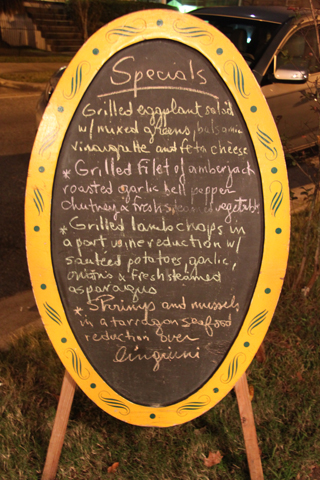 Specials
Grilled eggplant salad
w/ mixed greens, balsamic
vinaigrette and feta cheese
* Grilled Filet of amberjack
roasted garlic bell pepper
chutney & fresh steamed vegetables
* Grilled lamb chops in
a port wine reduction w/
sauteed potatoes, garlic,
onions & fresh steamed
asparagus
* Shrimps and mussels
in a tarragon seafood
reduction over
linguini